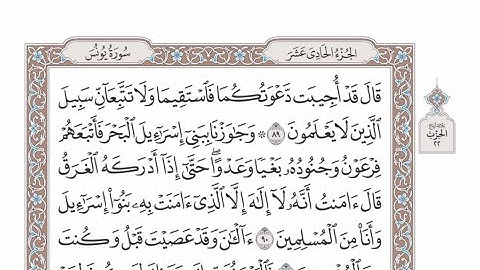 الجُزْءُ الحَادِى عَشَرَ
سُورَةُ يُونُسَ
قَالَ قَدْ أُجِيبَت دَّعْوَتُكُمَا فَٱسْتَقِيمَا وَلَا تَتَّبِعَآنِّ سَبِيلَ
ٱلَّذِينَ لَا يَعْلَمُونَ ٨٩ ۞ وَجَٰوَزْنَا بِبَنِىٓ إِسْرَٰٓءِيلَ ٱلْبَحْرَ فَأَتْبَعَهُمْ
فِرْعَوْنُ وَجُنُودُهُۥ بَغْيًا وَعَدْوًا ۖ حَتَّىٰٓ إِذَآ أَدْرَكَهُ ٱلْغَرَقُ
قَالَ ءَامَنتُ أَنَّهُۥ لَآ إِلَٰهَ إِلَّا ٱلَّذِىٓ ءَامَنَتْ بِهِۦ بَنُوٓا۟ إِسْرَٰٓءِيلَ
وَأَنَا۠ مِنَ ٱلْمُسْلِمِينَ ٩٠ ءَآلْـَٰٔنَ وَقَدْ عَصَيْتَ قَبْلُ وَكُنتَ
الحِزْبِ
٢٢